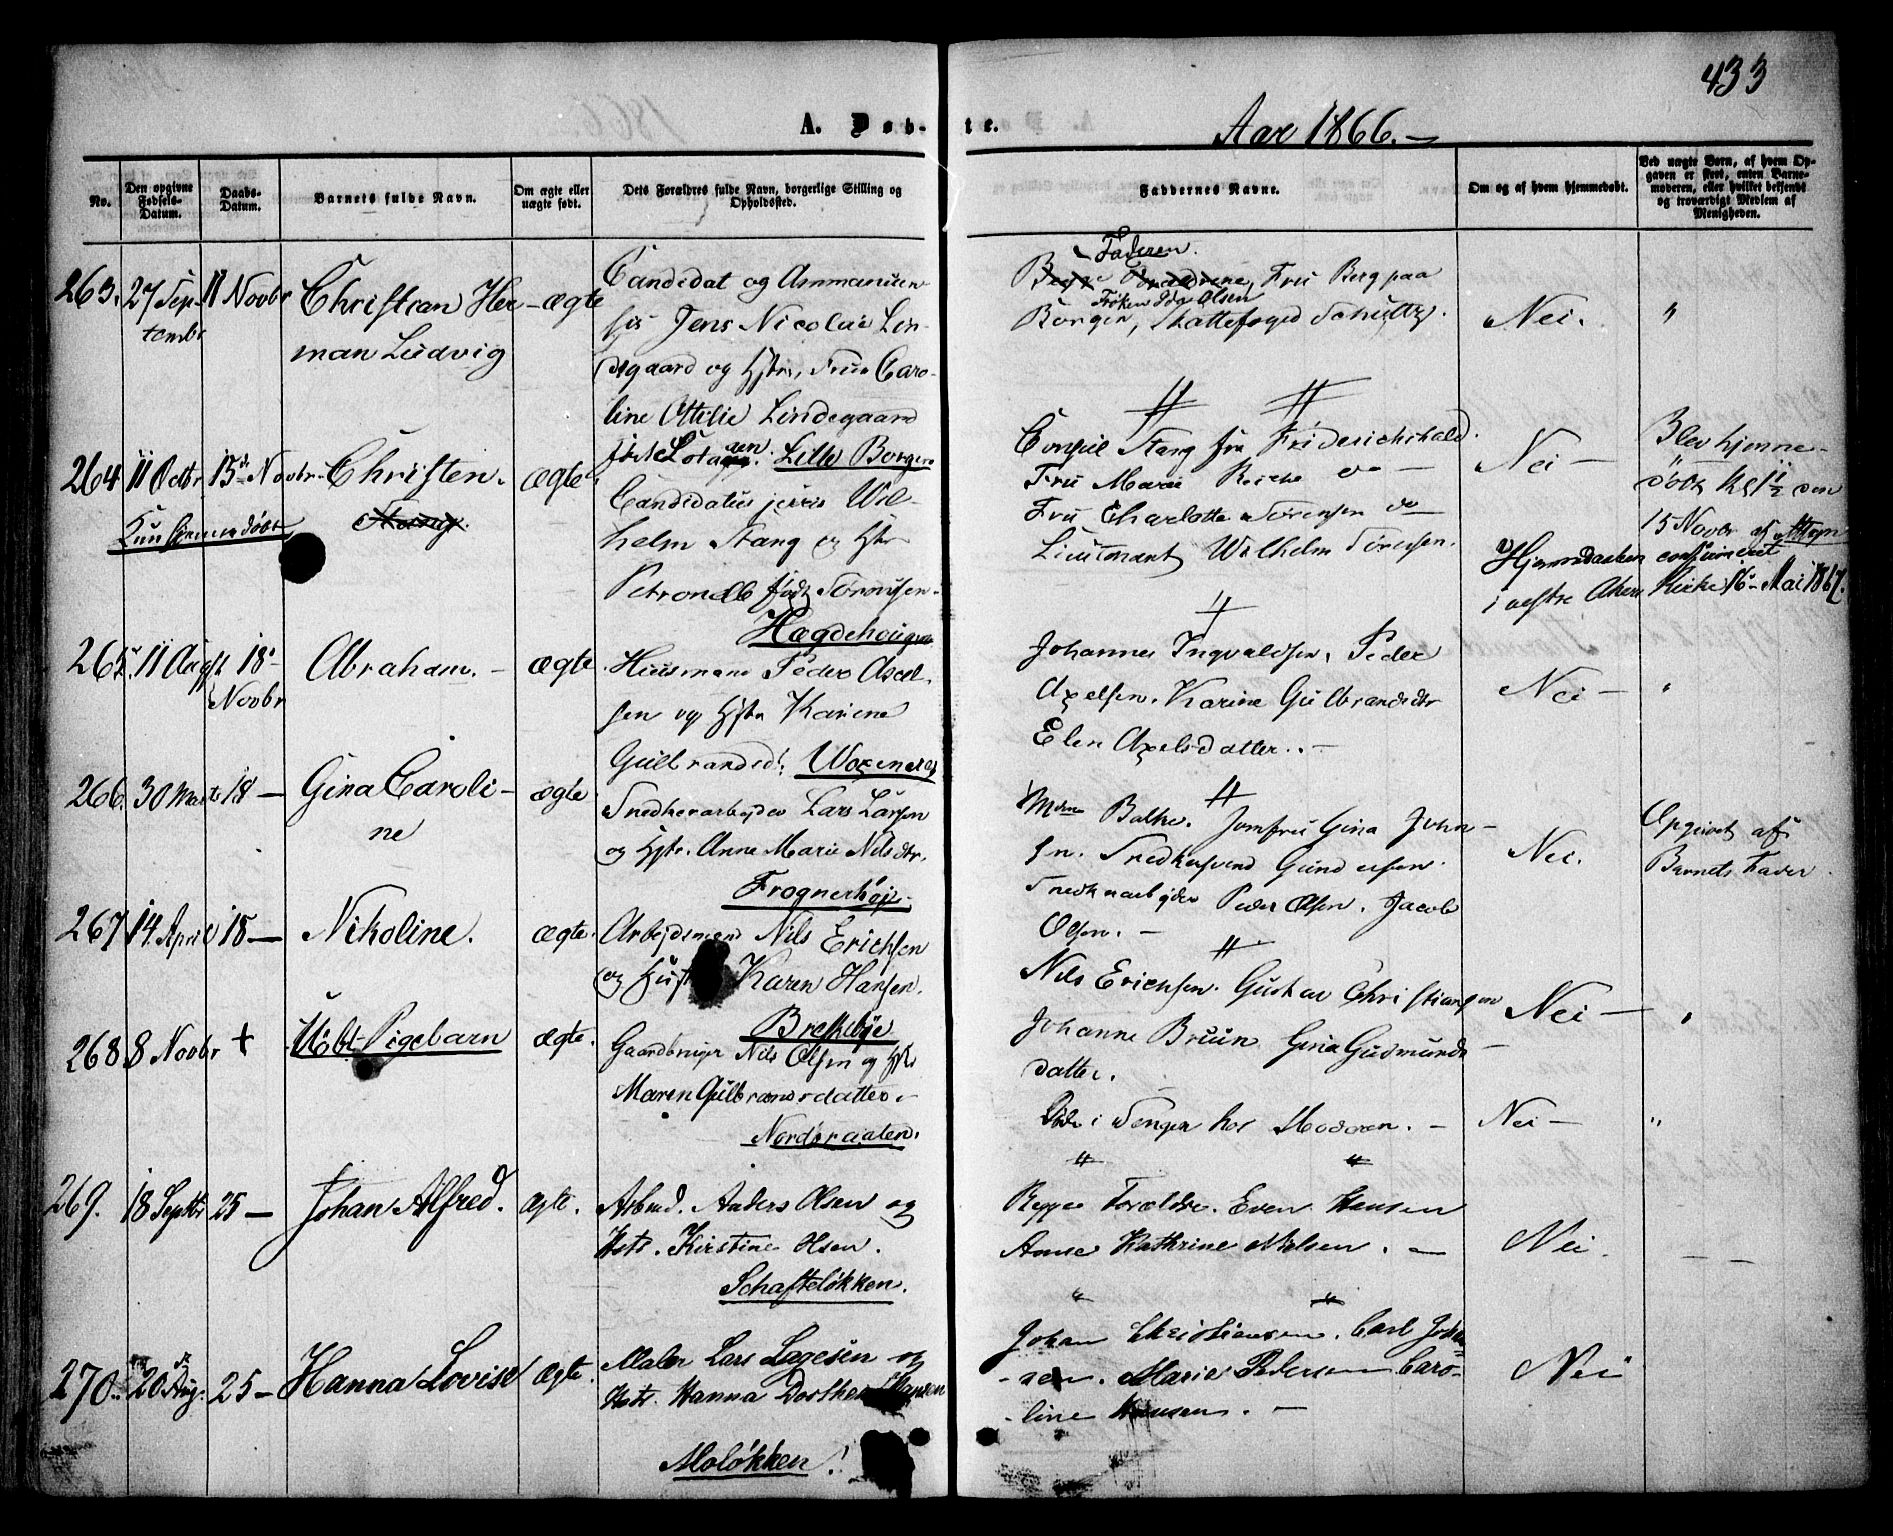 433
A. Døb-te.
Aar 1866.
No.
Den opgivne Fødsels-Datum.
Daabs-Datum.
Barnets fulde Navn.
Om ægte eller uægte født.
Dets Forældres fulde Navn, borgerlige Stilling og Opholdssted.
Faddernes Navne.
Om og af hvem hjemmedøbt.
Ved uægte Børn, af hvem Opgaven er skeet, enten Barnemoderen, eller hvilket bekjendt og troværdigt Medlem af Menigheden.
263. 27 Sep-
tembr
11 Novbr
Christian Her-
man Ludvig
ægte
Candidat og Ammanuen
sis Jens Nicolai Lin-
degaard og Hstr, Frue Caro-
line Ottilie Lindegaard
født Lille Borgen
Faderen.
Begge Forældrene, Fru Berg paa
Frøken Ida Olsen
Borgen, Skattefoged Schultz.
Nei. "
264 11 Octbr. 15de Novbr.
Kun hjemmedøbt
Christen.
Stang.
ægte
Candidatus juris Wil-
helm Stang og Hstr
Petronelle født Sørensen
Hægdehougen
Consul Stang fra Friderichshald.
Fru Marie Reiche do —
Fru Charlotte Sørensen do
Lieutenant Wilhelm Sørensen.
Nei —
Blev hjemme-
døbt Kl 1½ den
15 Novbr af
Hjemmedaaben confirmeret
i vestre Akers Kirke 16 Mai 1867.
265. 11 Augst 18
Novbr
Abraham. —
ægte
Huusmand Peder Axel-
sen og Hstr Karine
Gulbrandsd:
Johannes Ingvaldsen, Peder
Axelsen. Karine Gulbrandsdtr
Elen Axelsdatter. —
Nei — "
266. 30 Marts 18 —
Gina Caroli-
ne
ægte
Snedkerarbejder Lars Larsen
og Hstr. Anne Marie Nilsdtr.
Frognerhøj.
Mdm Balke. Jomfru Gina John-
sn. Snedkersvend Gundersen.
Snedkerarbejder Peder Olsen. Jacob
Olsen. —
Nei.
Opgivet af
Barnets Fader.
267 14 April 18 —
Nikoline.
ægte.
Arbejdsmand Nils Erichsen
og Hustr Karen Hansen.
Breskebye
Nils Erichsen. Gustav Christiansen
Johanne Bruun Gina Gudmunds-
datter.
Nei — "
268 8 Novbr +
Udbt Pigebarn
ægte.
Gaardbruger Nils Olsen og Hstr
Maren Gulbrandsdatter.
Nordbraaten.
Døde i Sengen hos Moderen. —
Nei — "
269. 18 Septbr 25 —
Johan Alfred.
ægte.
Arbmd. Anders Olsen og
Hstr. Kirstine Olsen.
Schafteløkken.
Begge Forældre. Even Hansen
Anne Kathrine Nielsen. —
Nei. —
270. 20 Aug. 25 —
Hanna Lovise
ægte.
Maler Lars Lagesen og
Hstr. Hanna Dorthea Hansen
Moløkken!
Johan Christiansen. Carl Johan-
sen. Marie Pedersen Caro-
line Hansen. —
Nei